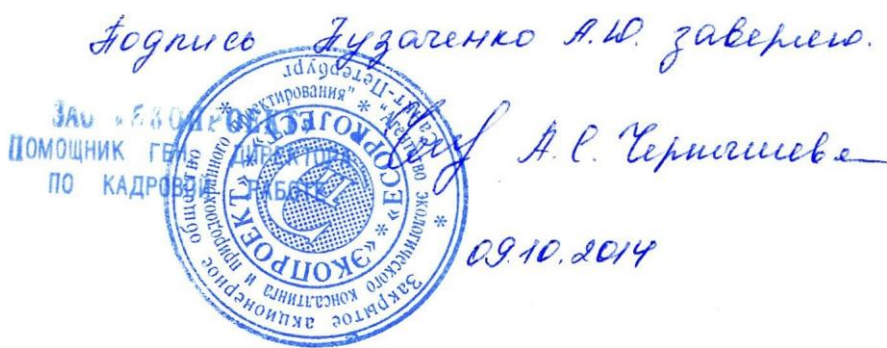 Подпись Пузаченко А.Ю. заверяю.
ЗАО «ЭКОПРОЕКТ»
ПОМОЩНИК ГЕН. ДИРЕКТОРА
ПО КАДРОВОЙ РАБОТЕ
А.С. Чернышева
09.10.2014
Закрытое акционерное общество * Санкт-Петербург *
"Агентство экологического консалтинга и природоохранного проектирования" *
«ЭКОПРОЕКТ» * «ECOPROJECT» *